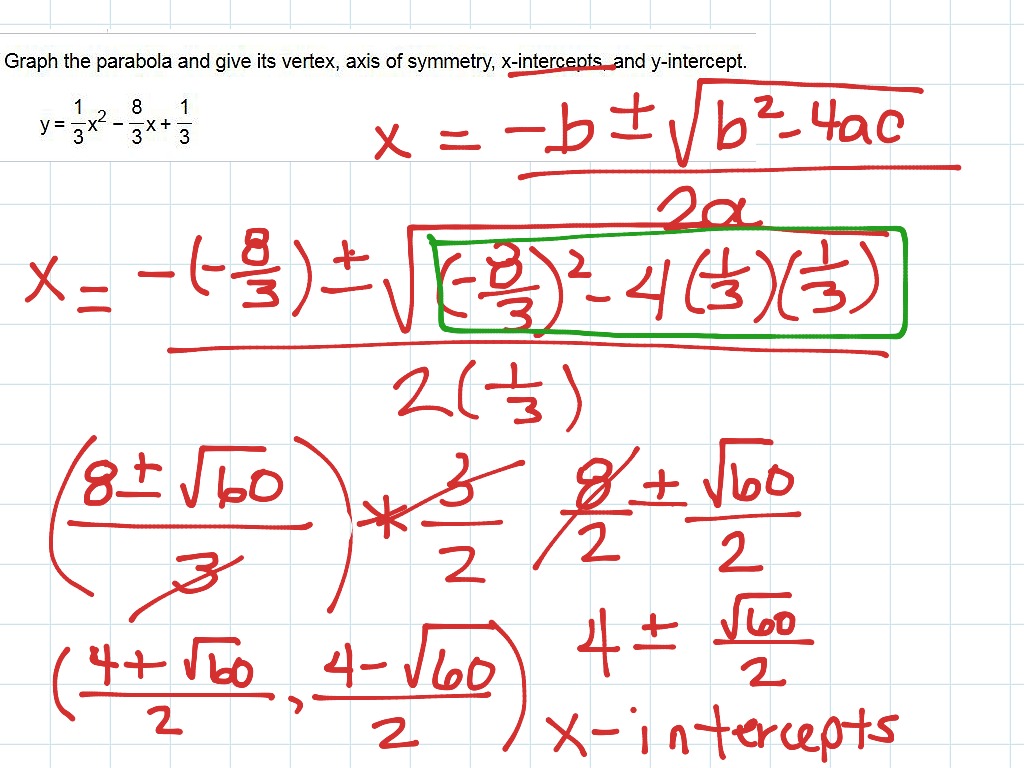 Graph the parabola and give its vertex, axis of symmetry, x-intercepts, and y-intercept.
y = 1/3 x² − 8/3 x + 1/3
x = (-b ± √(b² - 4ac)) / 2a
x = (-(-8/3) ± √((-8/3)² - 4(1/3)(1/3))) / 2(1/3)
((8 ± √60) / 3) * 3/2 8/2 ± √60/2
4 ± √60/2
((4 + √60)/2 , (4 - √60)/2)
x-intercepts